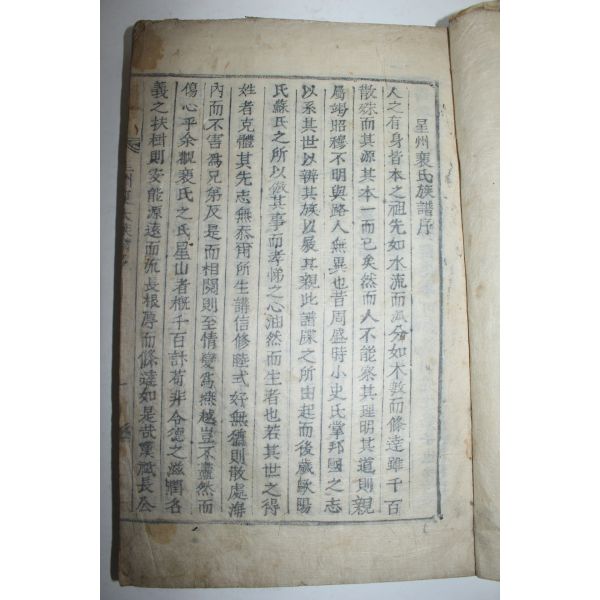 星州裵氏族譜序
人之有身皆本之祖先如水流而派分如木敷而條達雖千百
散殊而其源其本一而已矣然而人不能察其理明其道則親
屬竭昭穆不明與路人無異也昔周盛時小史氏掌邦國之志
以系其世以辨其族以展其親此譜牒之所由起而後歲歐陽
氏蘇氏之所以倣其事而孝悌之心油然而生者也若其世之得
姓者克體其先志無忝爾所生講信修睦式好無猶則散處海
內而不害爲兄弟反是而相鬩則至情變爲燕越豈不盡然而
傷心乎余觀裵氏之氏星山者概千百計苟非令德之滋潤名
義之扶樹則安能源遠而流長根厚而條達如是哉漢祗長公